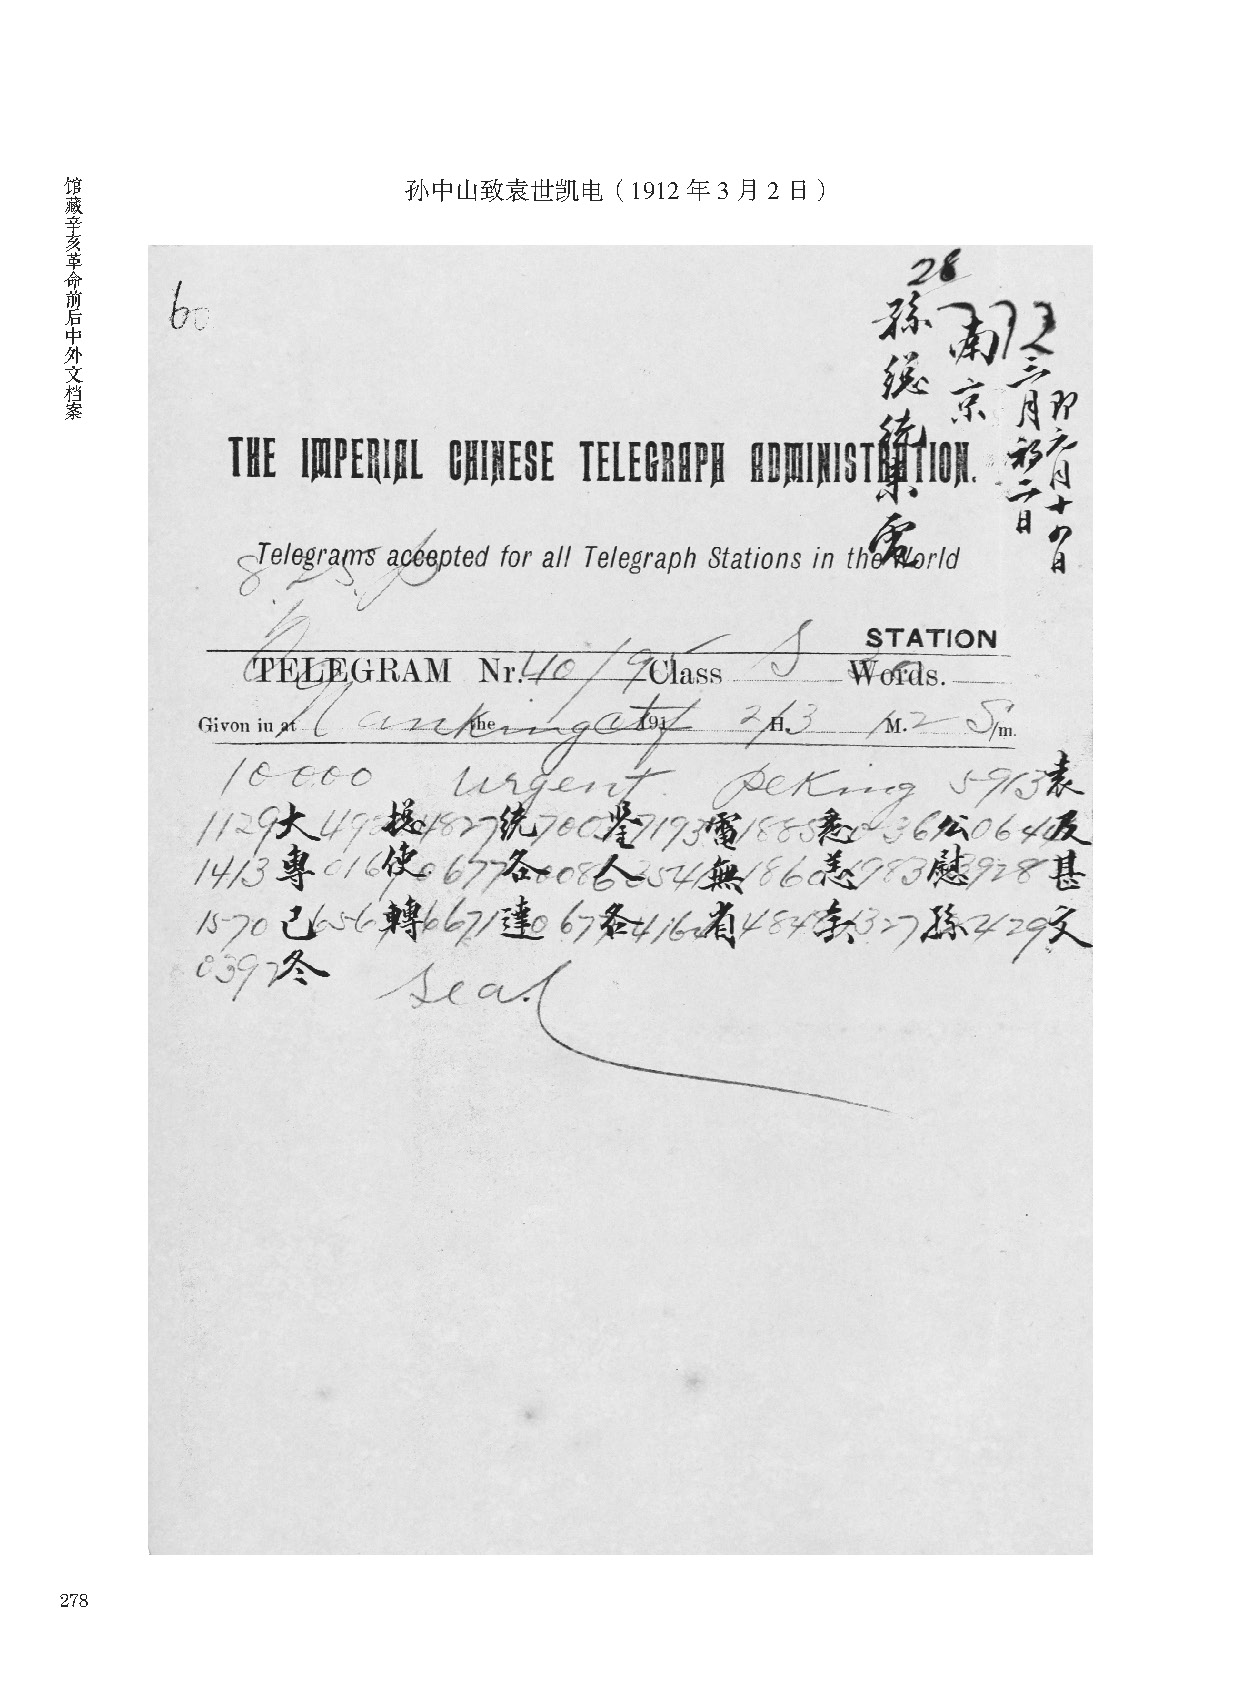 馆藏辛亥革命前后中外文档案
孙中山致袁世凯电（1912 年 3 月 2 日）
60
28
孫總統來電
南京
三月初二日
即元月十四日
THE IMPERIAL CHINESE TELEGRAPH ADMINISTRATION.
Telegrams accepted for all Telegraph Stations in the World
8.25. p
STATION
TELEGRAM Nr. 40/95 Class S Words.
Givon in at Nanking the 191 2/3 H. M. 2 5/m.
10000 urgent peking 5913袁
1129大 總 4827統 7003鑒 7193電 1885悉 公 0644及
1413專 016 使 0677各 0086人 2541無 1860恙 1983慰 3928甚
1570已 6567轉 6671達 0677各 4164省 4848 1327孫 2429文
0392冬 seal
278